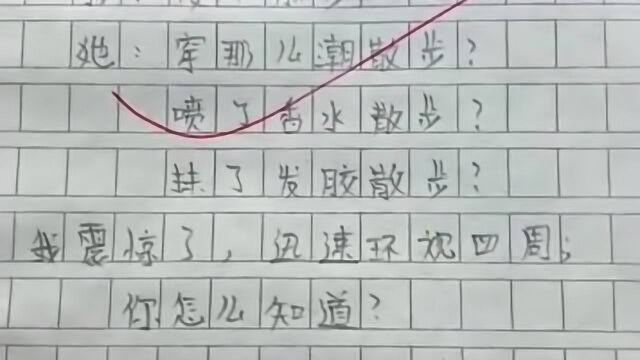 她：穿那么潮散步？
喷了香水散步？
抹了发胶散步？
我震惊了，迅速环视四周；
你怎么知道？